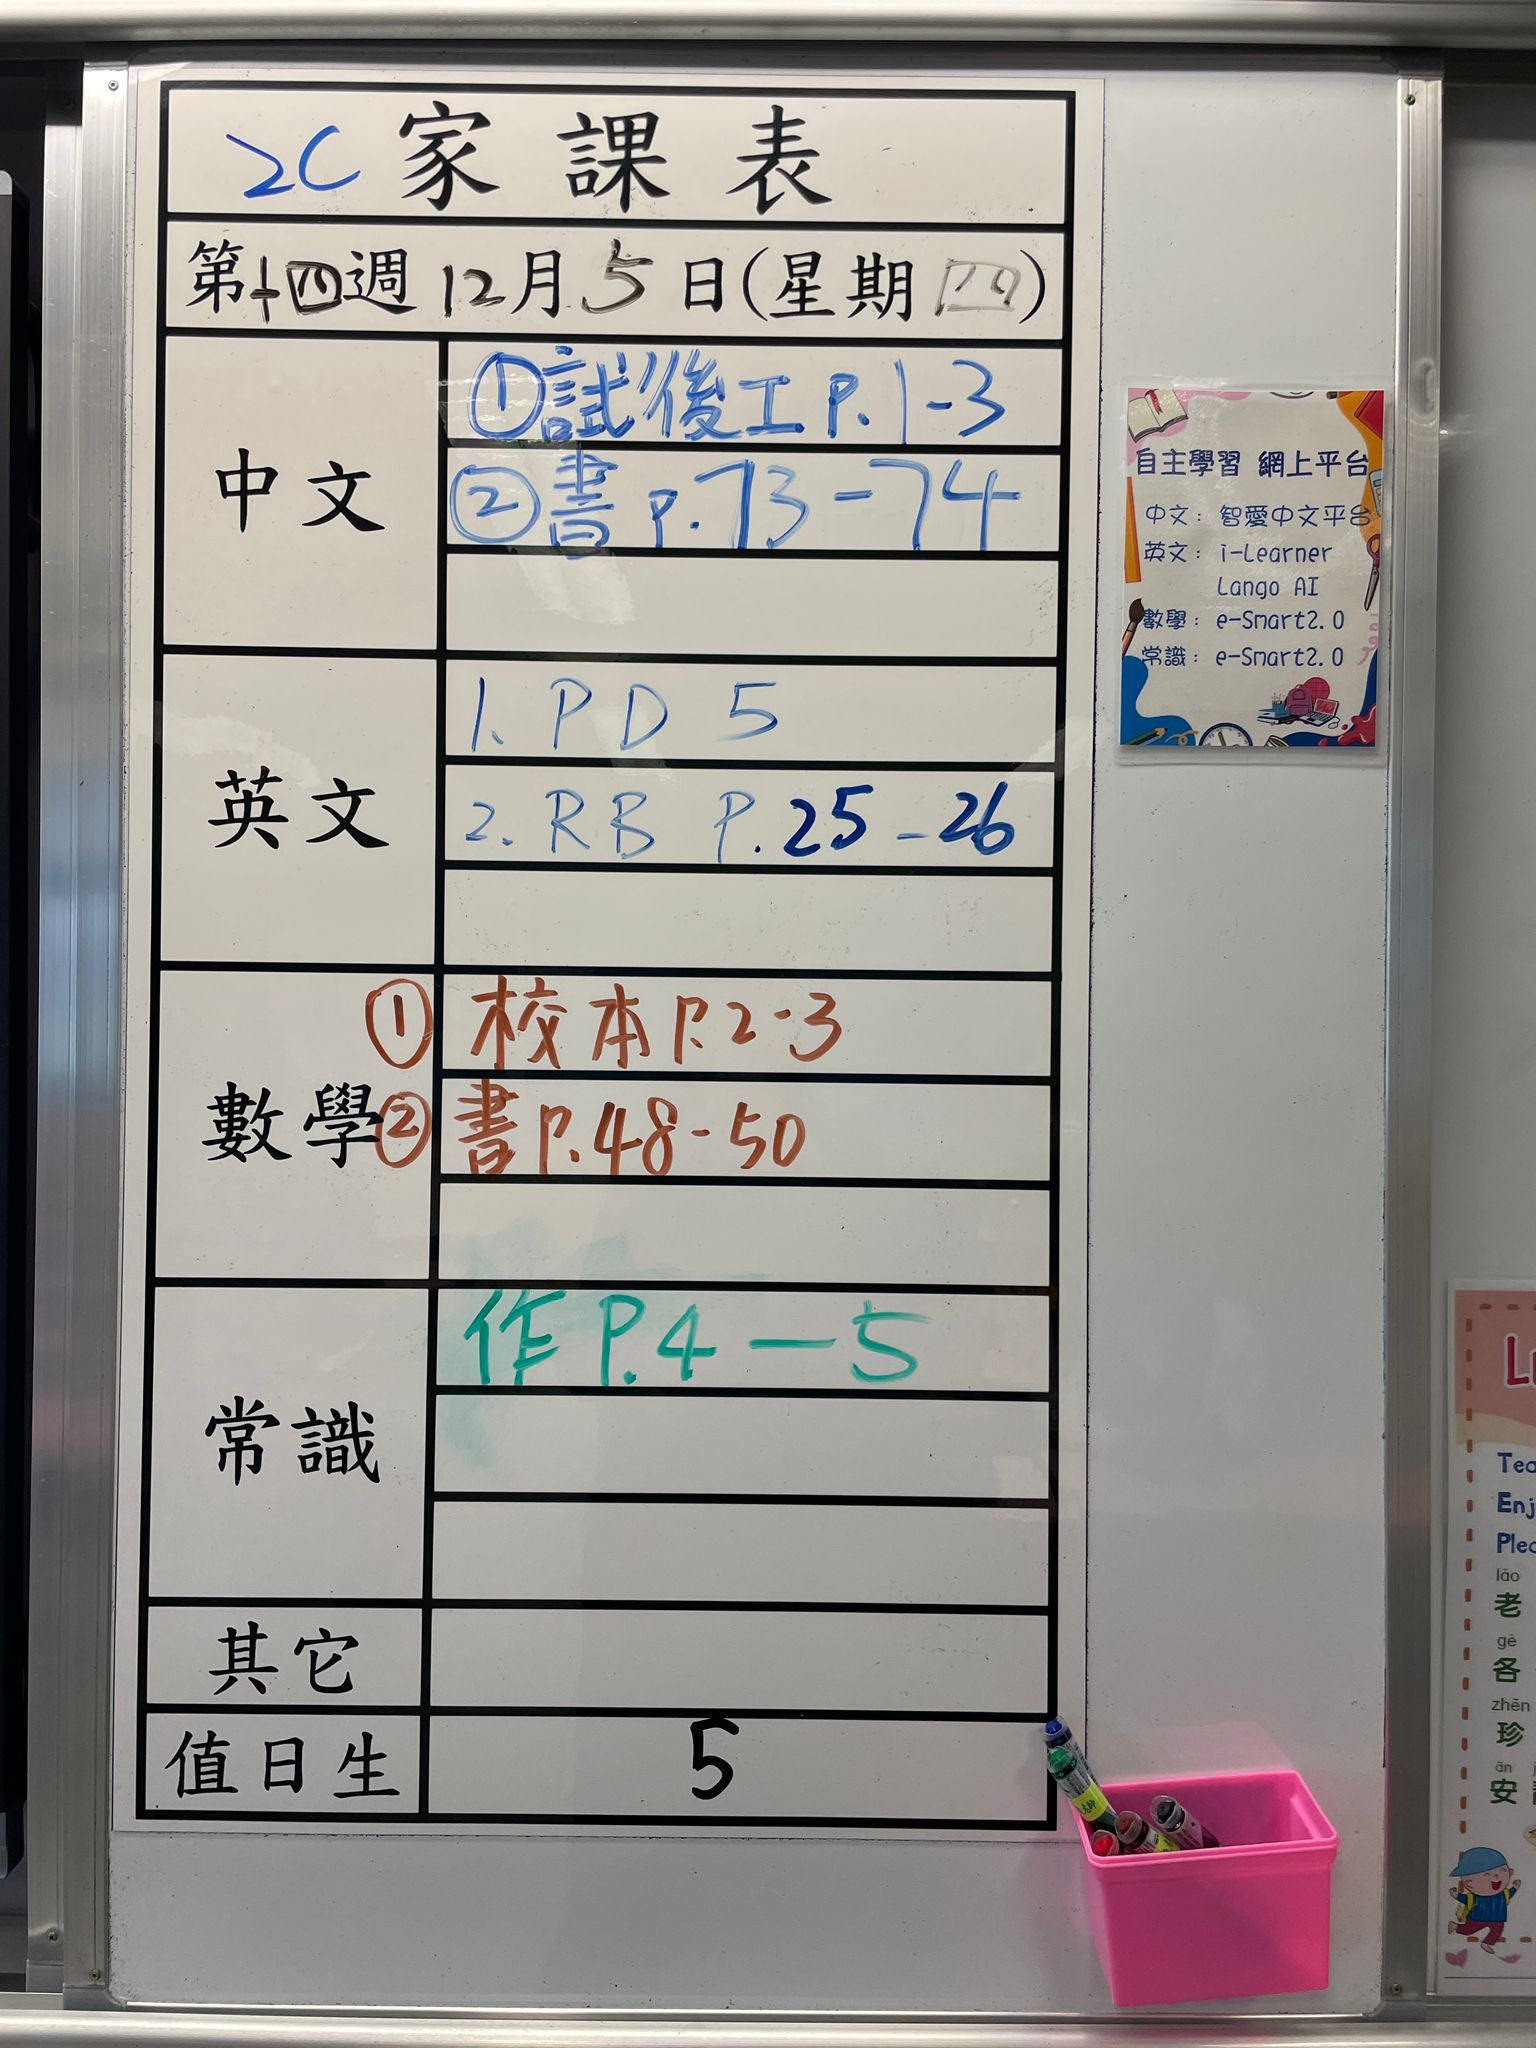 2C 家課表
第十四週 12月5日(星期四)
中文
①試後工 P.1-3
②書 P.73-74
英文
1. PD 5
2. RB P.25-26
數學
① 校本 P.2-3
② 書 P.48-50
常識
作 P.4-5
其它
值日生
5
自主學習 網上平台
中文：智愛中文平台
英文：i-Learner
Lango AI
數學：e-Smart2.0
常識：e-Smart2.0
lǎo
老
gè
各
zhēn
珍
ān
安